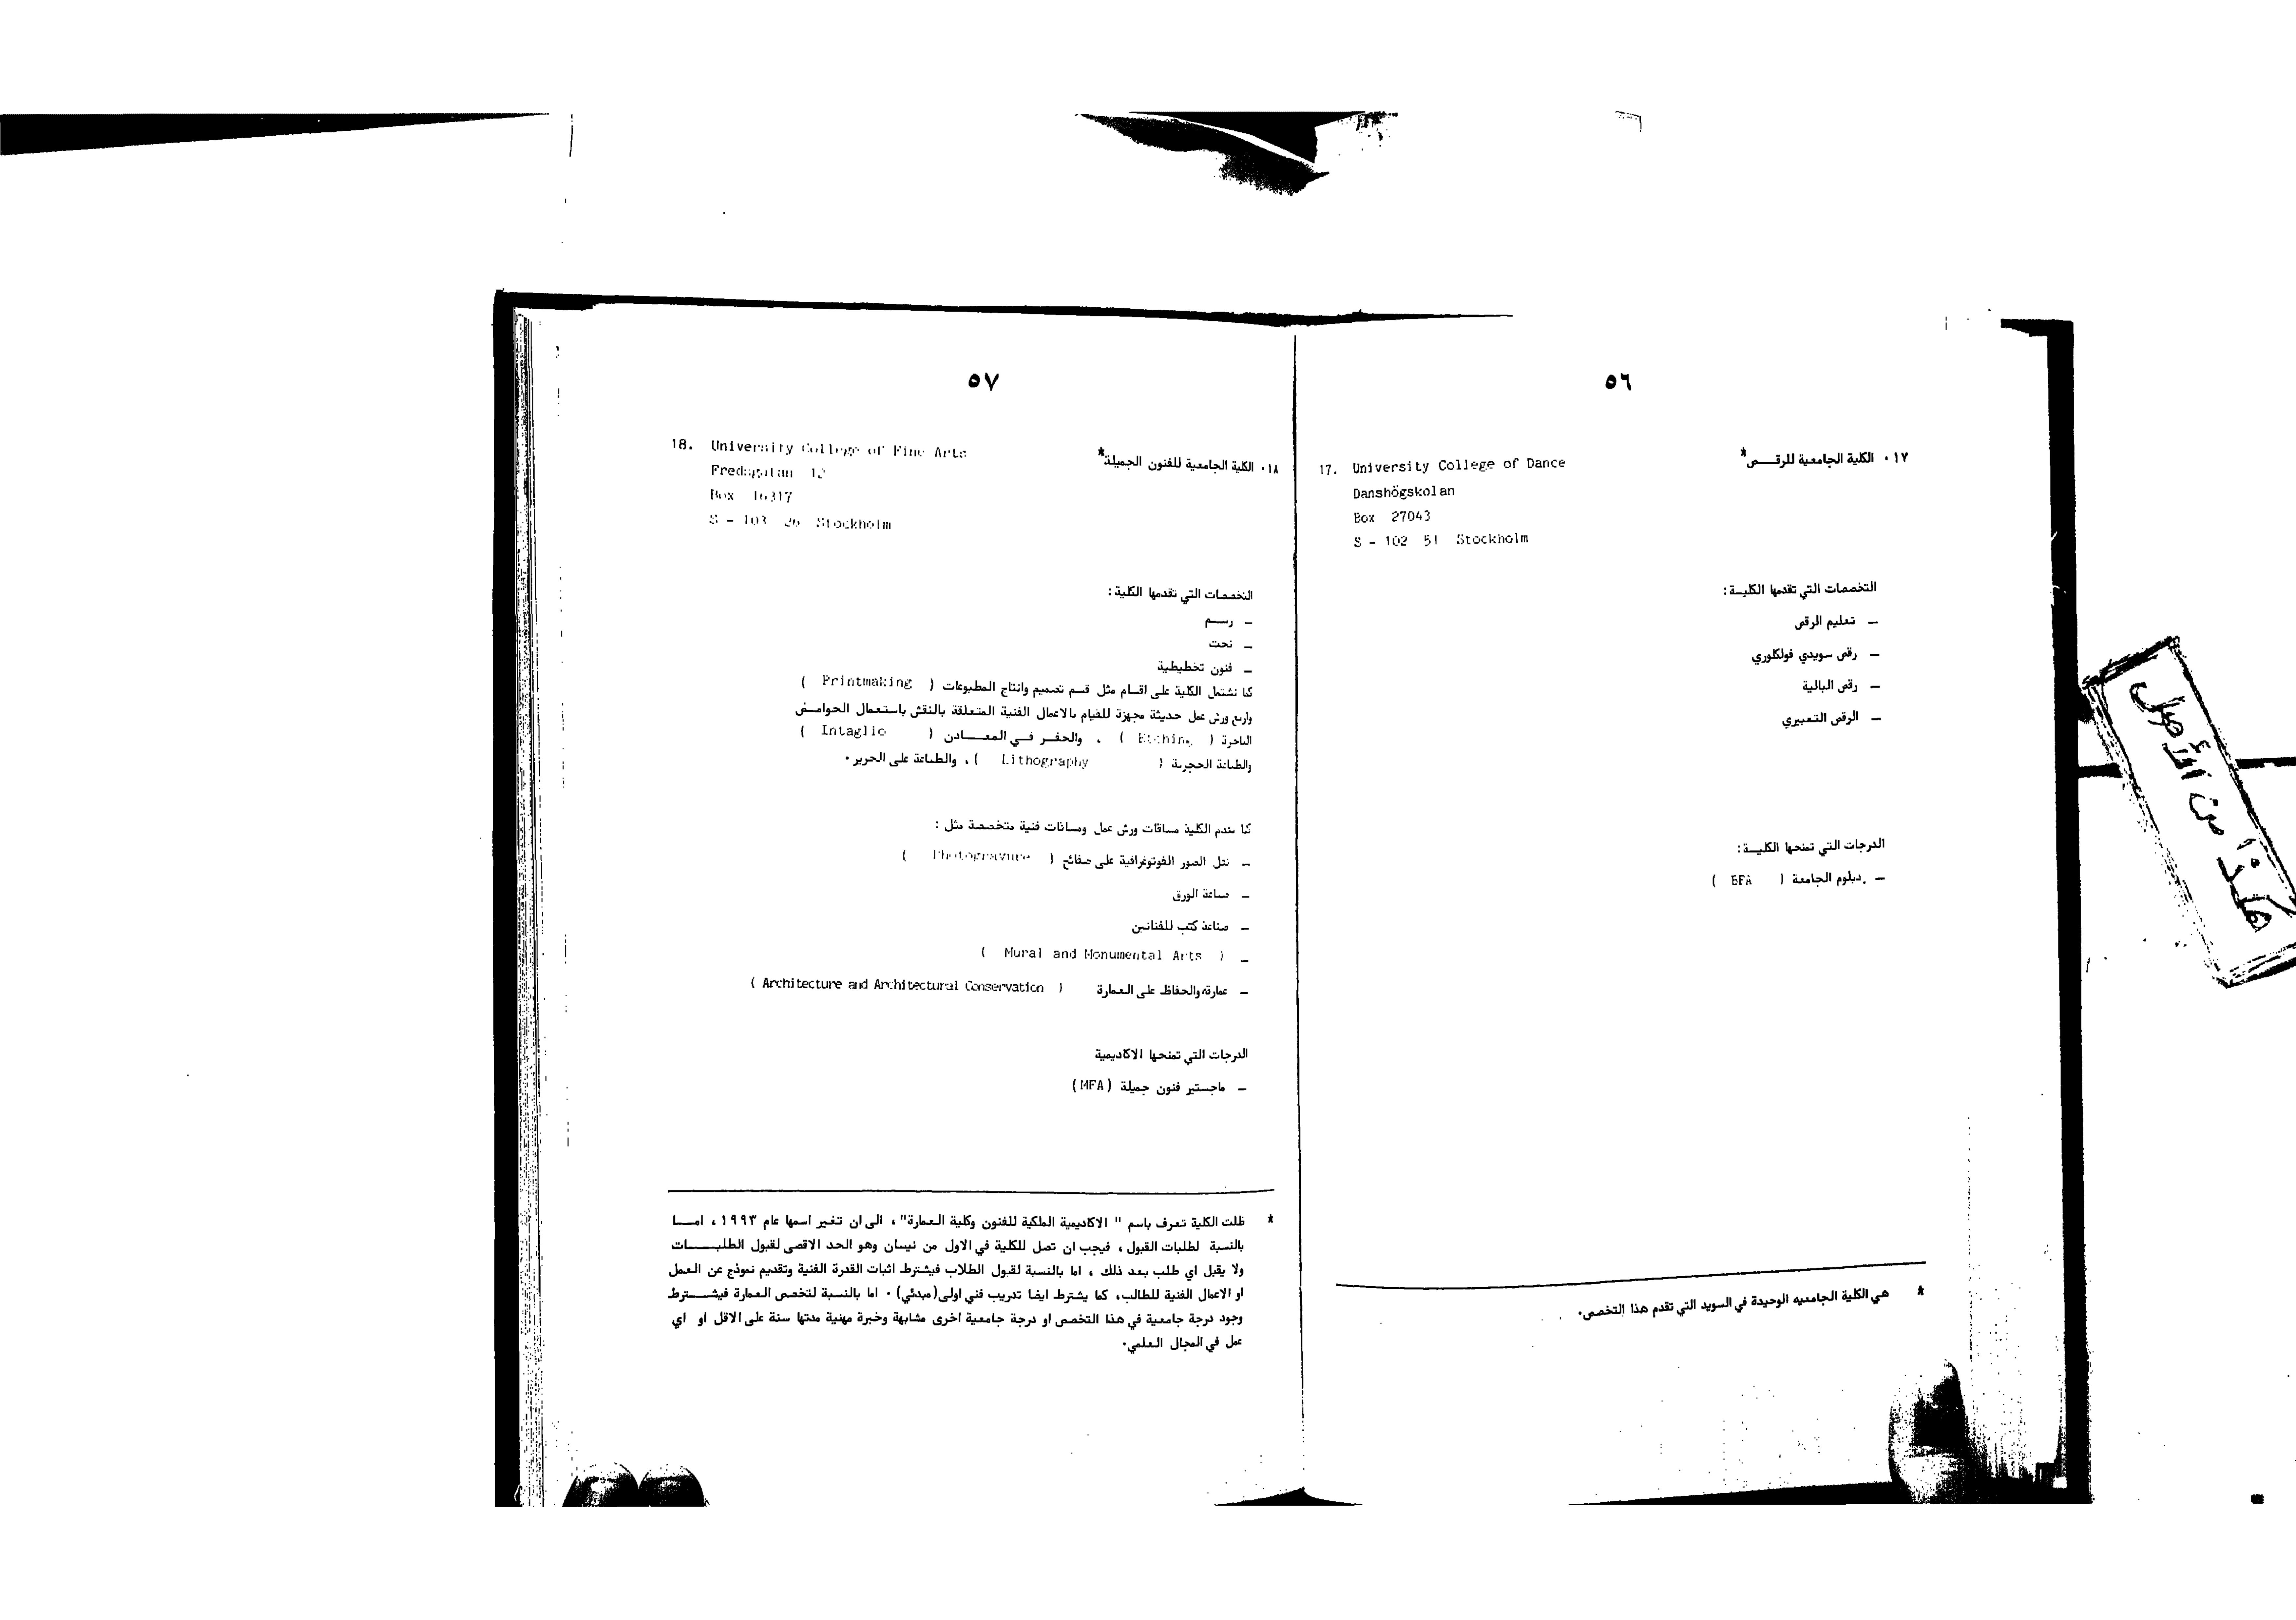 ٥٦
١٧ ٠ الكلية الجامعية للرقـــص*
17. University College of Dance
Danshögskolan
Box 27043
S - 102 51 Stockholm
التخصصات التي تقدمها الكليــة :
ـ تعليم الرقص
ـ رقص سويدي فولكلوري
ـ رقص البالية
ـ الرقص التعبيري
الدرجات التي تمنحها الكليــة :
ـ دبلوم الجامعة ( BFA )
* هي الكلية الجامعيه الوحيدة في السويد التي تقدم هذا التخصص٠
٥٧
١٨ ٠ الكلية الجامعية للفنون الجميلة*
18. University College of Fine Arts
Fredsgatan 12
Box 16317
S - 103 26 Stockholm
التخصصات التي تقدمها الكلية :
ـ رســم
ـ نحت
ـ فنون تخطيطية
كما تشتمل الكلية على اقسام مثل قسم تصميم وانتاج المطبوعات ( Printmaking )
واربع ورش عمل حديثة مجهزة للقيام بالاعمال الفنية المتعلقة بالنقش باستعمال الحوامــض
( Etching ) ، والحفــر فــي المعــــادن ( Intaglio )
والطباعة الحجرية ( Lithography ) ، والطباعة على الحرير ٠
كما تقدم الكلية مساقات ورش عمل ومساقات فنية متخصصة مثل :
ـ نقل الصور الفوتوغرافية على صفائح ( Photogravure )
ـ صناعة الورق
ـ صناعة كتب للفنانين
ـ ( Mural and Monumental Arts )
ـ عمارة والحفاظ على العمارة ( Architecture and Architectural Conservation )
الدرجات التي تمنحها الاكاديمية
ـ ماجستير فنون جميلة (MFA)
* ظلت الكلية تعرف باسم " الاكاديمية الملكية للفنون وكلية العمارة" ، الى ان تغير اسمها عام ١٩٩٣ ، امـــا
بالنسبة لطلبات القبول ، فيجب ان تصل للكلية في الاول من نيسان وهو الحد الاقصى لقبول الطلبـــــات
ولا يقبل اي طلب بعد ذلك ، اما بالنسبة لقبول الطلاب فيشترط اثبات القدرة الفنية وتقديم نموذج عن العمل
او الاعمال الفنية للطالب، كما يشترط ايضا تدريب فني اولى(مبدئي) ٠ اما بالنسبة لتخصص العمارة فيشـــترط
وجود درجة جامعية في هذا التخصص او درجة جامعية اخرى مشابهة وخبرة مهنية مدتها سنة على الاقل او اي
عمل في المجال العلمي٠
هكذا من الأصل